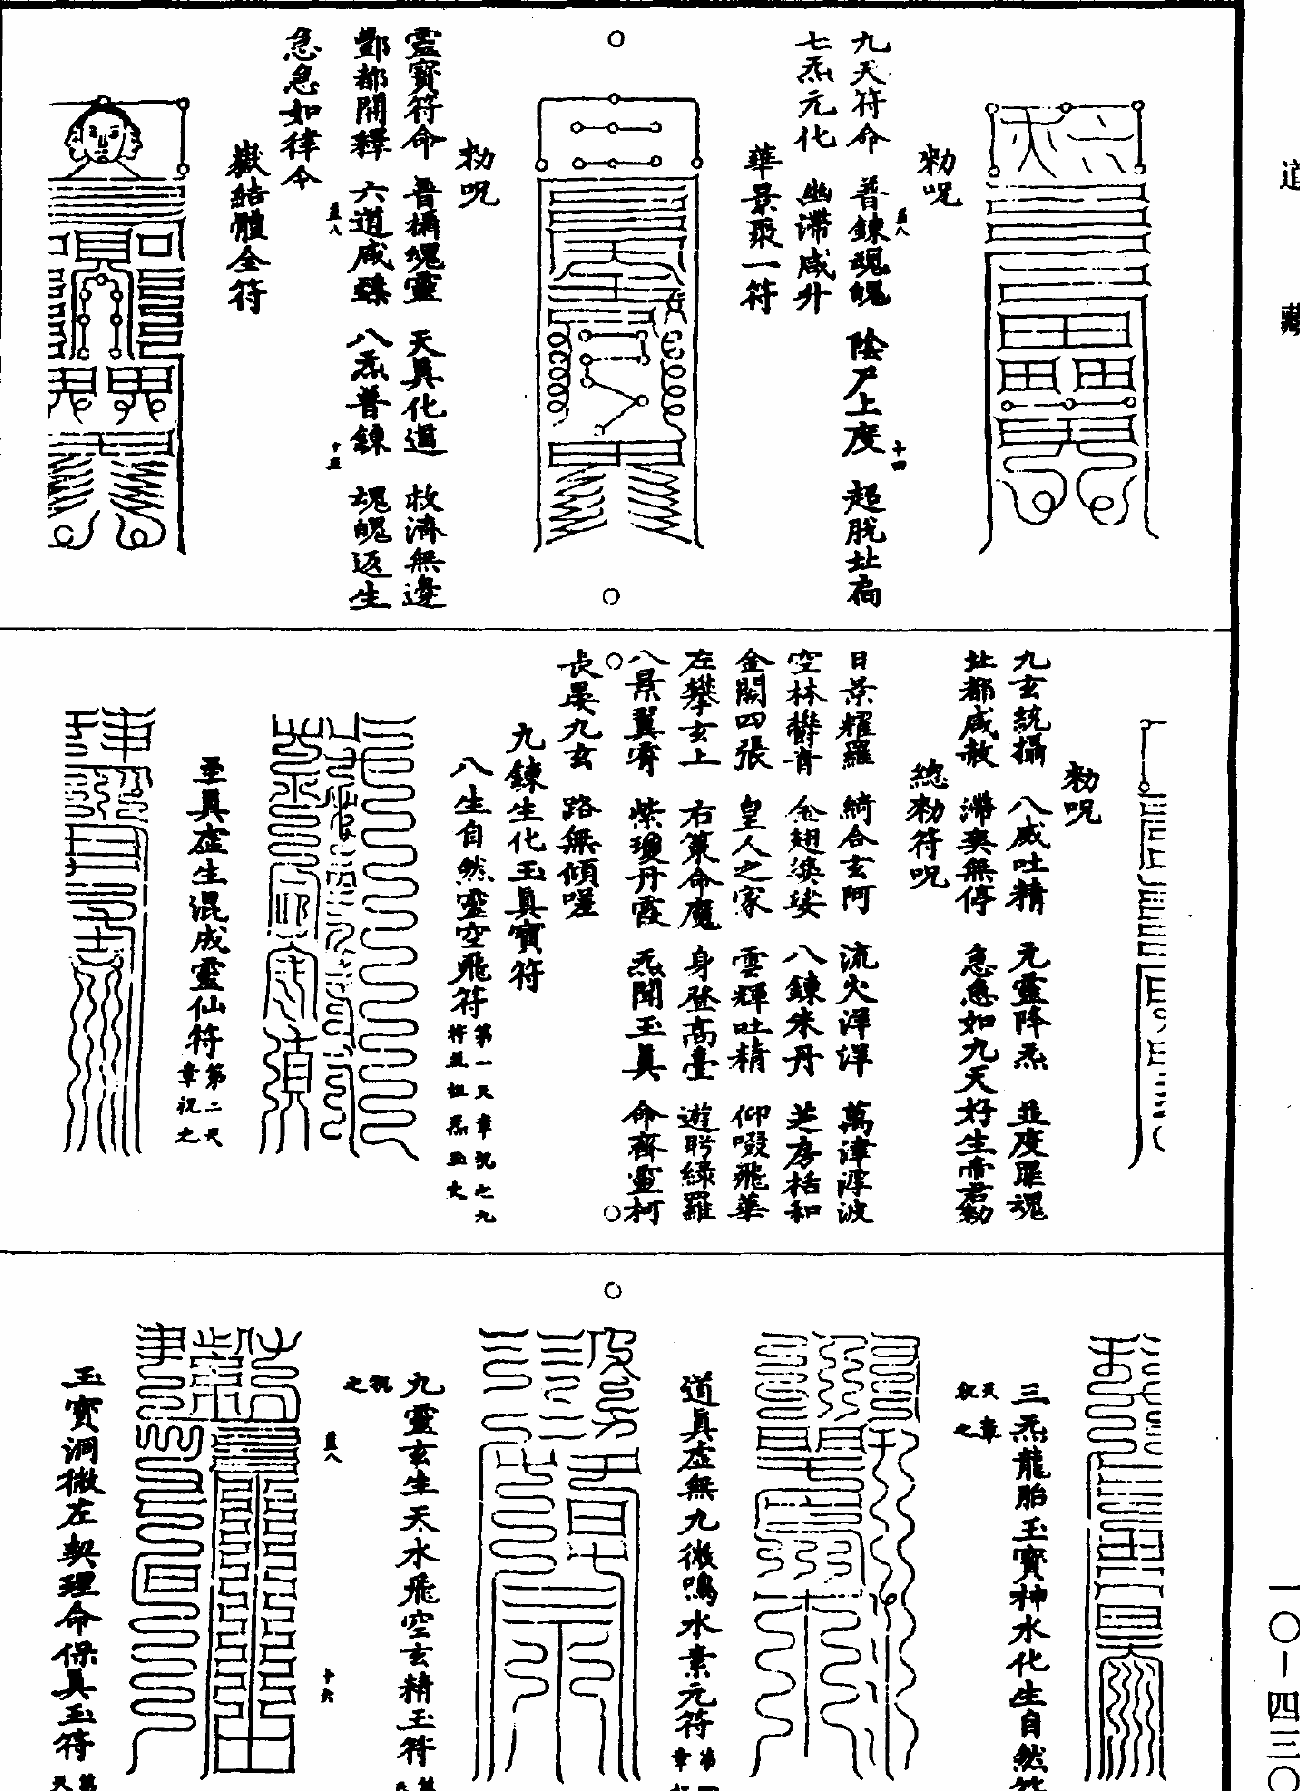 道藏
敕咒
九天符命 普鍊魂魄 陰尸上度 超脫北扃
七炁元化 幽滯咸升
華景聚一符
敕咒
靈寶符命 普攝魂靈 天真化道 救濟無邊
酆都開釋 六道咸臻 八炁普鍊 魂魄返生
急急如律令
嶽結體全符
敕咒
九玄統攝 八威吐精 元靈降炁 並度罪魂
北都咸赦 滯爽無停 急急如九天好生帝君敕
總敕符咒
日景耀羅 綺合玄阿 流火洋洋 萬津渟波
空林鬱育 金翅婆娑 八鍊朱丹 芝房括和
金闕四張 皇人之家 雲輝吐精 仰啜飛華
左攀玄上 右策命魔 身登高臺 遊眄綠羅
八景翼霄 紫瓊丹霞 炁聞玉真 命齊靈柯
長晏九玄 路無傾嗟
九鍊生化玉真寶符
八生自然靈空飛符 第一天章祝之九
符並祖炁並火
至真虛生混成靈仙符 第二天
章祝之
三炁龍胎玉寶神水化生自然符
天章
祝之
道真虛無九微鳴水素元符
九靈玄生天水飛空玄精玉符
祝
之
玉寶洞微左契理命保真玉符
一〇—四三〇